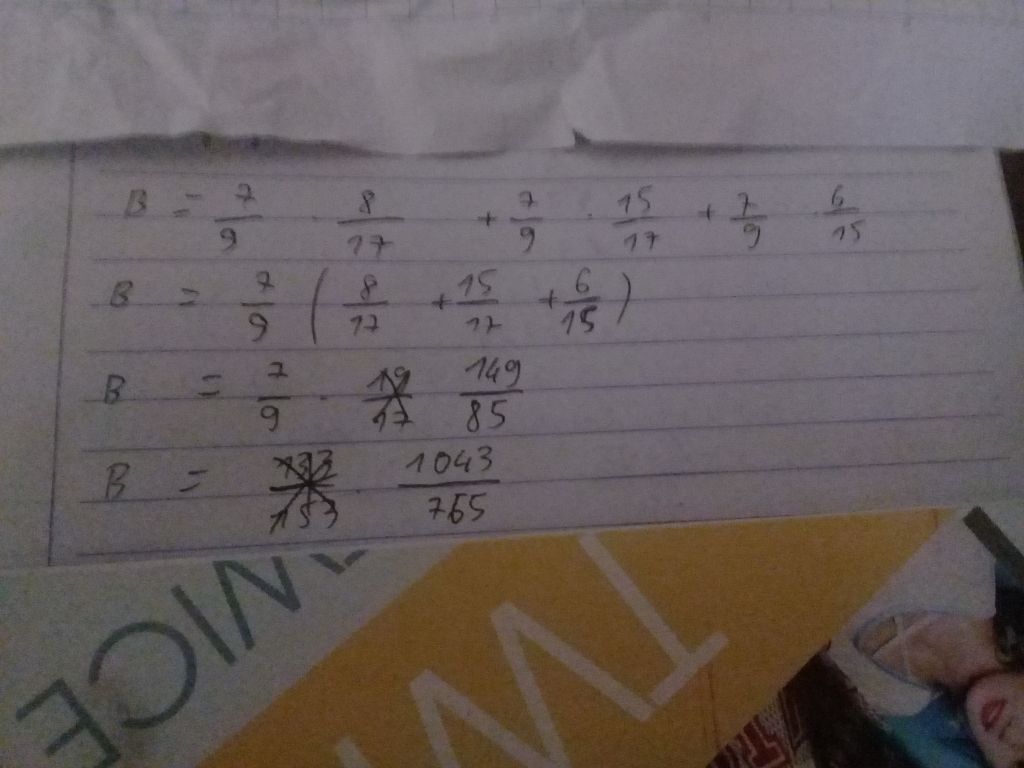 B = 7/9 · 8/17 + 7/9 · 15/17 + 7/9 · 6/15
B = 7/9 ( 8/17 + 15/17 + 6/15 )
B = 7/9 · 19/17 149/85
B = 133/153 1043/765
MICE